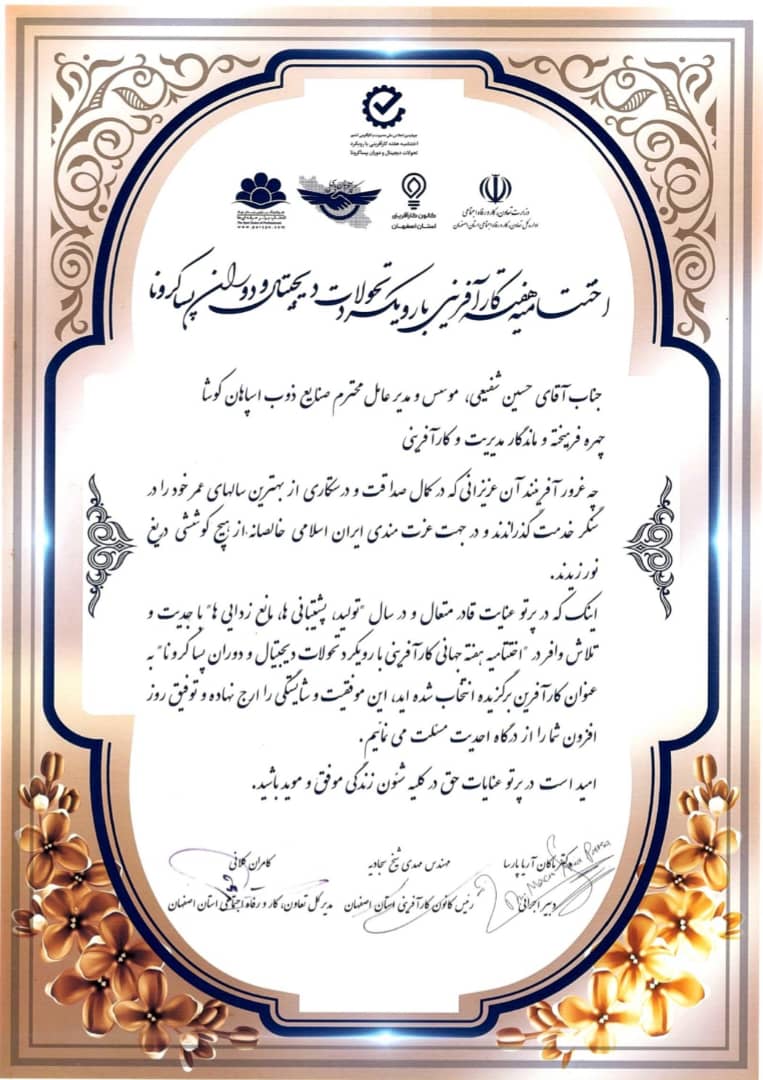 چهارمین اجلاس ملی مدیریت و کارآفرینی کشور
اختتامیه هفته کارآفرینی با رویکرد
تحولات دیجیتال و دوران پساکرونا
وزارت تعاون، کار و رفاه اجتماعی
اداره کل تعاون، کار و رفاه اجتماعی استان اصفهان
کانون کارآفرینی
استان اصفهان
www.parspe.com
اختتامیه هفته کارآفرینی با رویکرد تحولات دیجیتال و دوران پسا کرونا
جناب آقای حسین شفیعی، موسس و مدیر عامل محترم صنایع ذوب اسپاهان کوشا
چهره فرهیخته و ماندگار مدیریت و کارآفرینی
چه غرور آفرینند آن عزیزانی که در کمال صداقت و درستکاری از بهترین سالهای عمر خود را در
سنگر خدمت گذراندند و در جهت عزت مندی ایران اسلامی خالصانه، از هیچ کوششی دریغ
نورزیدند.
اینک که در پرتو عنایت قادر متعال و در سال "تولید، پشتیبانی ها، مانع زدایی ها" با جدیت و
تلاش وافر در "اختتامیه هفته جهانی کارآفرینی با رویکرد تحولات دیجیتال و دوران پسا کرونا" به
عنوان کارآفرین برگزیده انتخاب شده اید، این موفقیت و شایستگی را ارج نهاده و توفیق روز
افزون شما را از درگاه احدیت مسئلت می نمائیم.
امید است در پرتو عنایات حق در کلیه شئون زندگی موفق و موید باشید.
دکتر ماکان آریا پارسا
دبیر اجرائی
Dr. Macan Aria Parsa
مهندس مهدی شیخ سجادیه
رئیس کانون کارآفرینی استان اصفهان
کامران کلانی
مدیر کل تعاون، کار و رفاه اجتماعی استان اصفهان